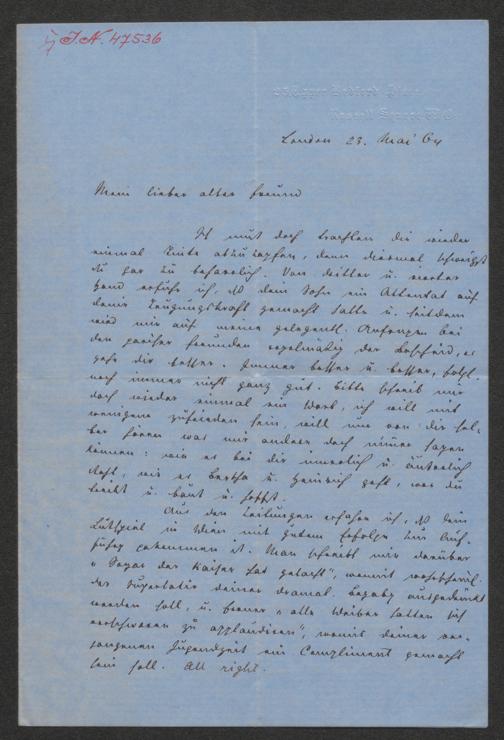 I.N. 47536
Upper Bedford Place
Russell Square W.C.
London 23. Mai 64
Mein lieber alter Freund
Ich muß doch trachten dir wieder
einmal Tinte abzuzapfen, denn diesmal schweigst
du gar zu beharrlich. Von dritter u. vierter
Hand erfuhr ich, daß dein Sohn ein Attentat auf
deine Zeugungskraft gemacht hatte u. seitdem
wird mir auf meine gelegentl. Anfragen bei
den pariser Freunden regelmäßig der Bescheid, es
gehe dir besser. Immer besser u. besser, folgl.
noch immer nicht ganz gut. Bitte schreib mir
doch wieder einmal ein Wort, ich will mit
wenigem zufrieden sein, will nur von dir sel-
ber hören was mir andere doch nimmer sagen
können: wie es bei dir innerlich u. äußerlich
steht, wie es Bertha u. Heinrich geht, was du
treibst u. baust u. hoffst.
Aus den Zeitungen erfahre ich, daß dein
Lustspiel in Wien mit gutem Erfolge zur Auf-
führg gekommen ist. Man schreibt mir darüber
"Sogar der Kaiser hat gelacht", womit wahrscheinl.
der Superlativ deiner dramat. Begabg ausgedrückt
werden soll, u. ferner "alle Weiber hatten sich
verschworen zu applaudiren", womit deiner ver-
gangenen Jugendzeit ein Compliment gemacht
sein soll. All right.